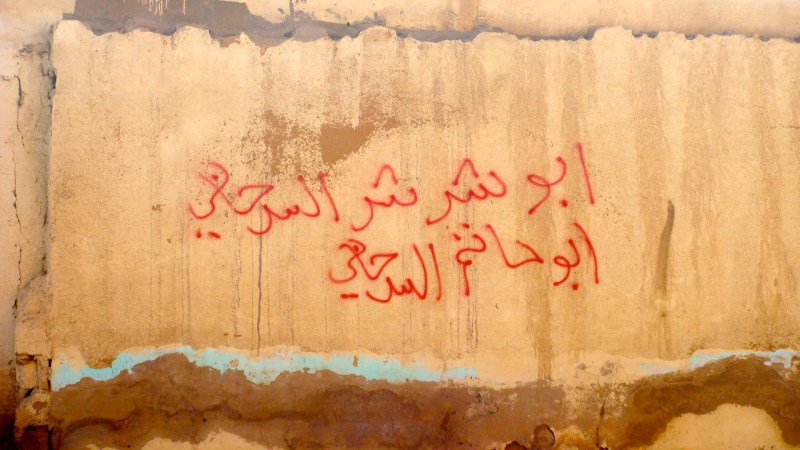 ابو شر شر السرحي
ابو حاتم السرحي